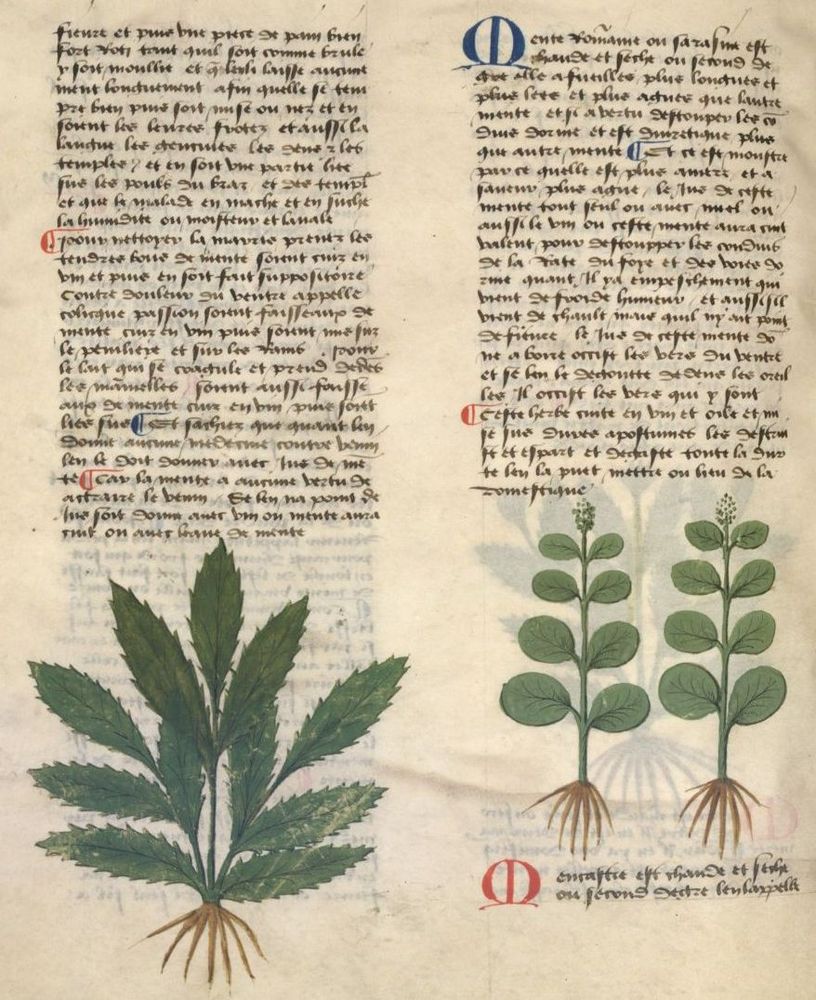 fieure et puis une piece de pain bien
fort Roti tant quil soit comme brule
y soit moullie et q̄ leśh laisse aucune
ment longuement afin quelle se tem
pre bien puis soit mise ou nez et en
soient les leures frotez et aussi la
langue les genciues les dens ⁊ les
temples / et en soit une partie liee
sus les pouls du braz et des templ
et que le malade en mache et en suche
la humidite ou moisteur et lauale
¶ Pour nettoyer la mayris prenez les
tendres bous de mente soient cuis en
vin et puis en soit fait suppositoire
Contre douleur du ventre appelle
colicque passion soient faisseaux de
mente cuis en vin puis soient mis sur
le penilliere et sur les Rains . pour
le lait qui se coagule et prend dedēs
les mamelles soient aussi faisse
aux de mente cuis en vin puis soient
lies sus ¶ Et sachiez que quant len
donne aucune medecine contre venin
len le doit donner avec Jus de me
te ¶ Car la mente a aucune vertu de
actraire le venin . Se len na point de
Jus soit donne avec vin ou mente aura
cuit ou avec leaue de mente
Mente Rom̄aine ou sarasine est
chaude et seche ou second de
gre elle a fueilles plus longues et
plus lees et plus agues que lautre
mente et si a vertu destouper les cō
duis dorine et est diuretique plus
que autre mente ¶ Et ce est monstre
par ce quelle est plus amere et a
saueur plus ague . le Jus de ceste
mente tout seul ou avec miel ou
aussi le vin ou ceste mente aura cuit
valent pour destoupper les conduis
de la Rate du foye et des voies do
rine quant Il ya empeschement qui
vient de froide humeur et aussi sil
vient de chault mais quil ny ait point
de fieure . le Jus de ceste mente dō
ne a boire occist les vers du ventre
et se len le degoutte dedens les oreil
les Il occist les vers qui y sont
¶ Ceste herbe cuite en vin et oile et mi
se sus dures apostumes les destru
ist et espart et degaste toute la dur
te len la puet mettre ou lieu de la
domestique
Mentastre est chaude et seche
ou second degre len lappelle